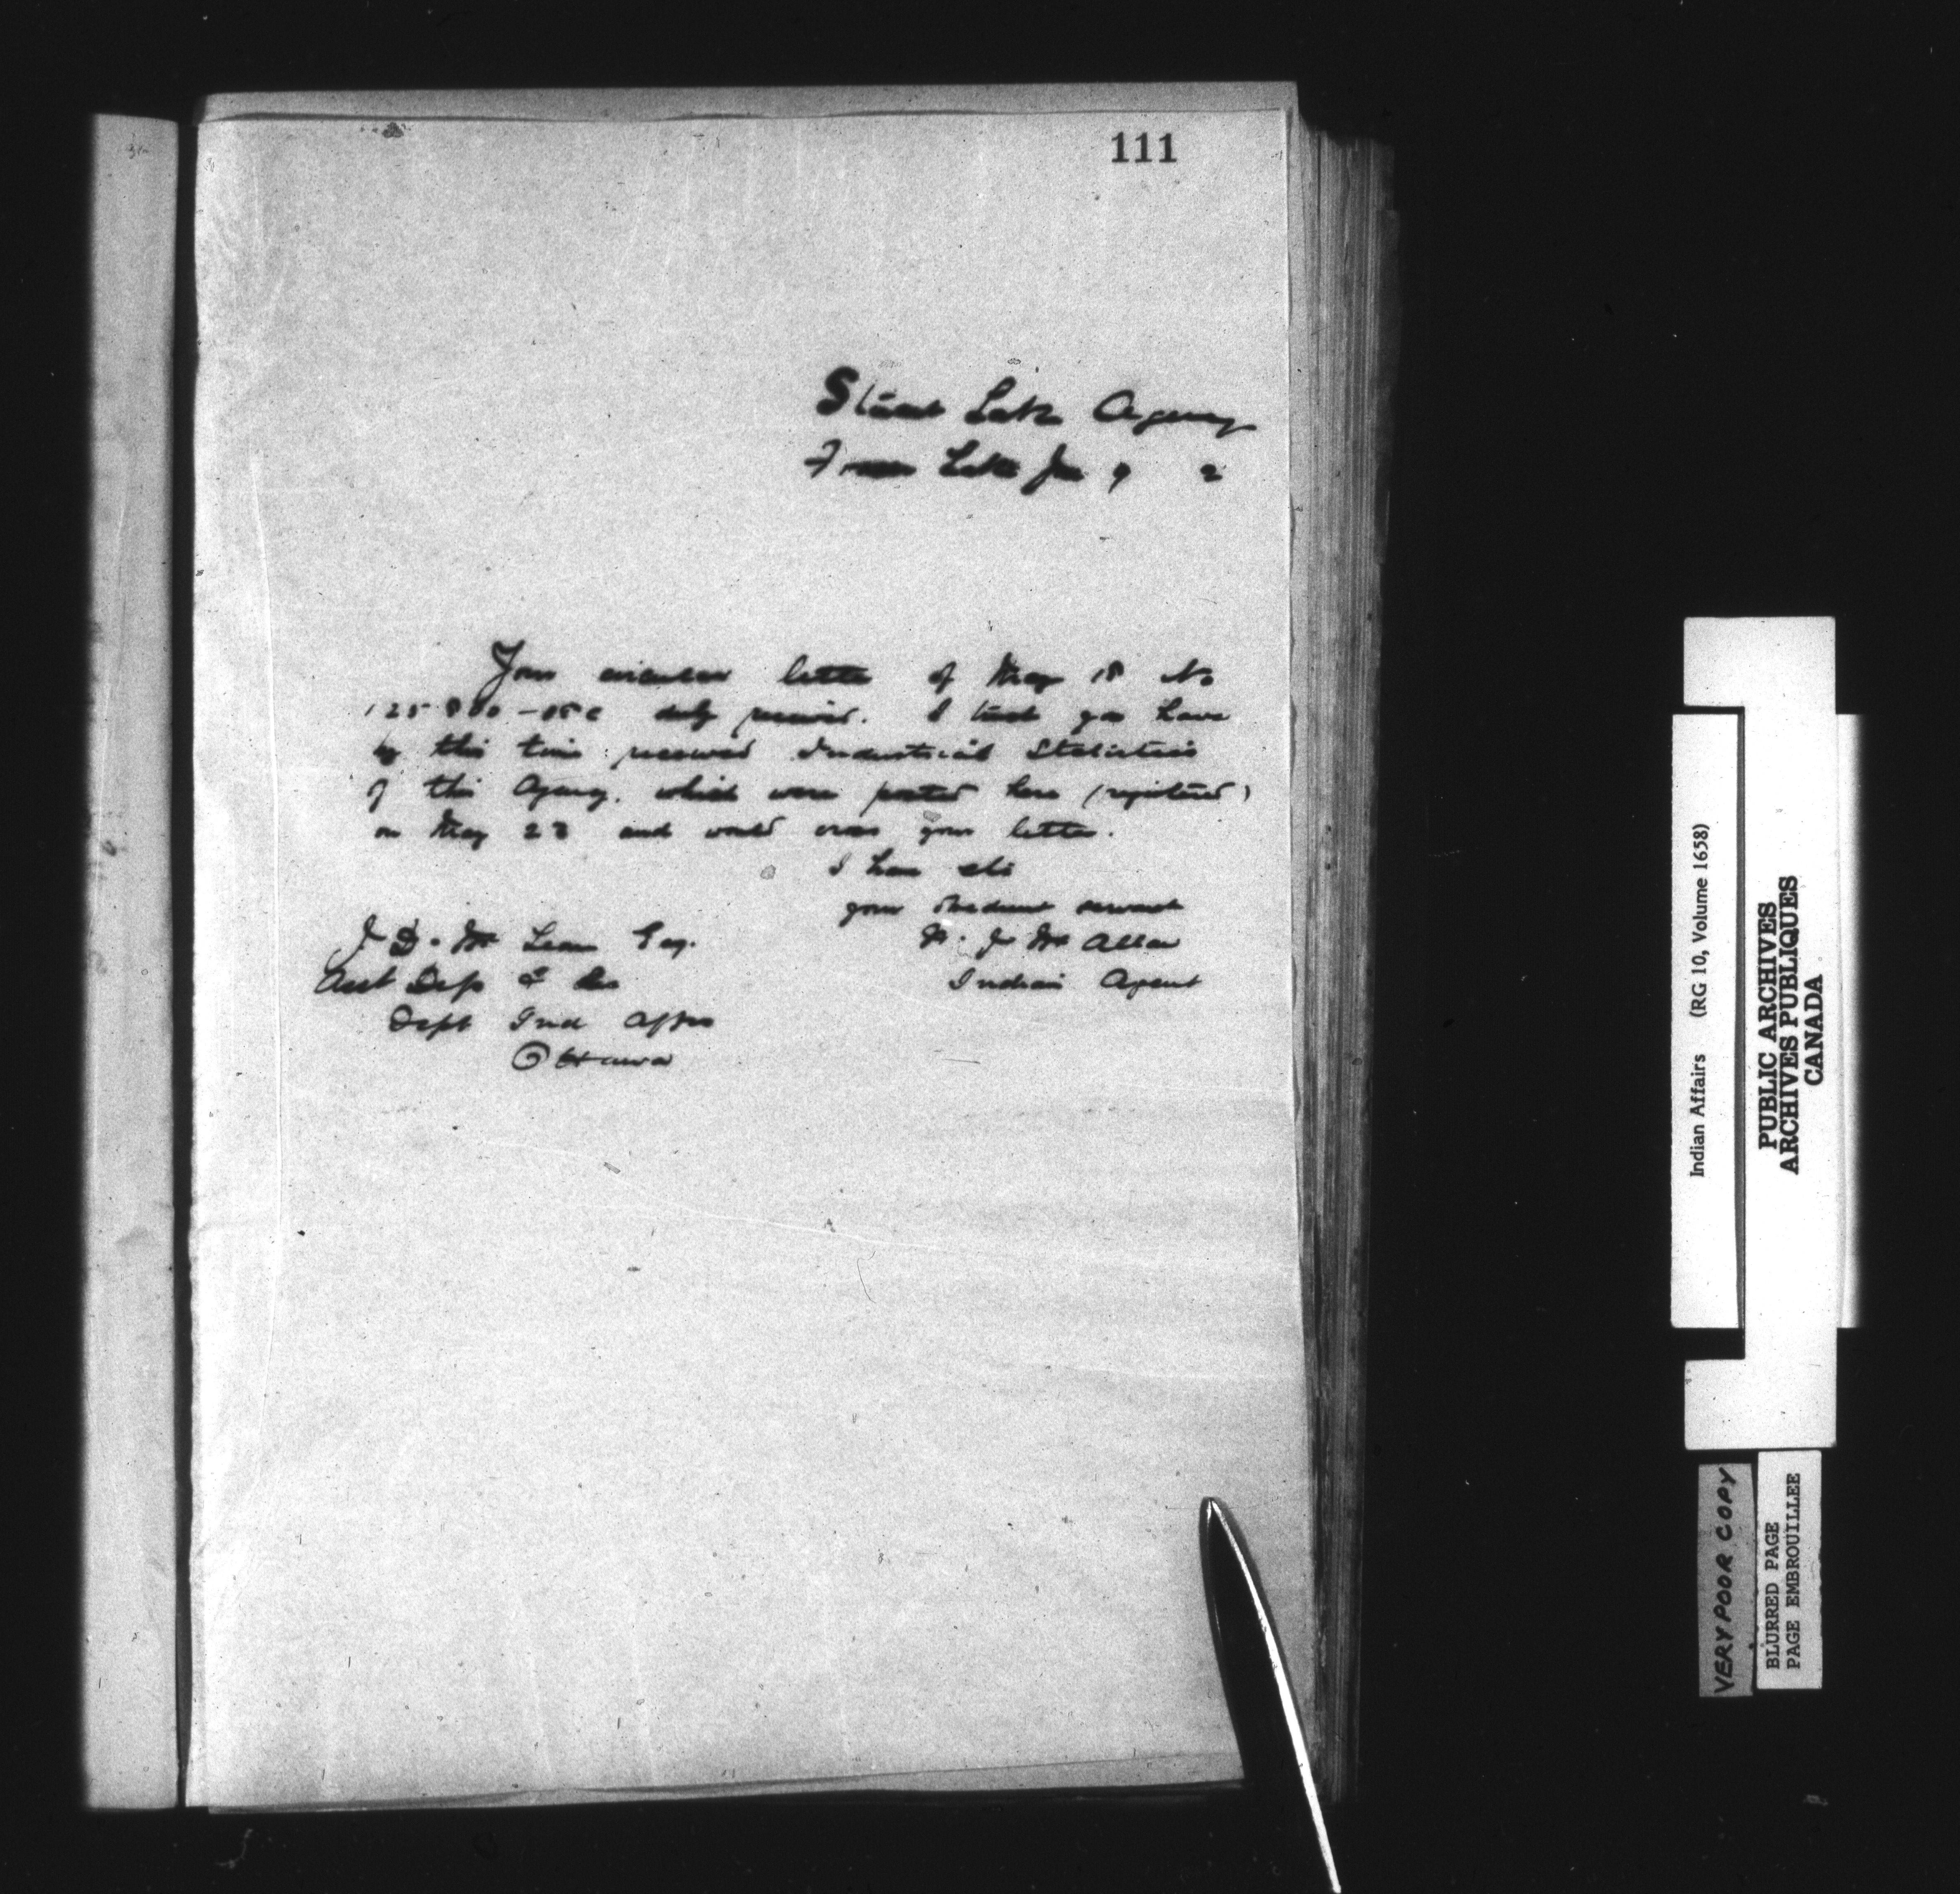 111
Stuart Lake Agency
Fraser Lake Jun 9 2
Your circular letter of May 18 No
duly received. I trust you have
by this time received Industrial Statistics
of this Agency, which were posted here (registered)
on May 23 and would cross your letter.
I have etc
your obedient servant
J. D. Mc Lean Esq. R. J Mc Allan
Asst Dep & Sec Indian Agent
Dept Ind Affrs
Ottawa
Indian Affairs (RG 10, Volume 1658)
PUBLIC ARCHIVES
ARCHIVES PUBLIQUES
CANADA
VERY POOR COPY
BLURRED PAGE
PAGE EMBROUILLEE